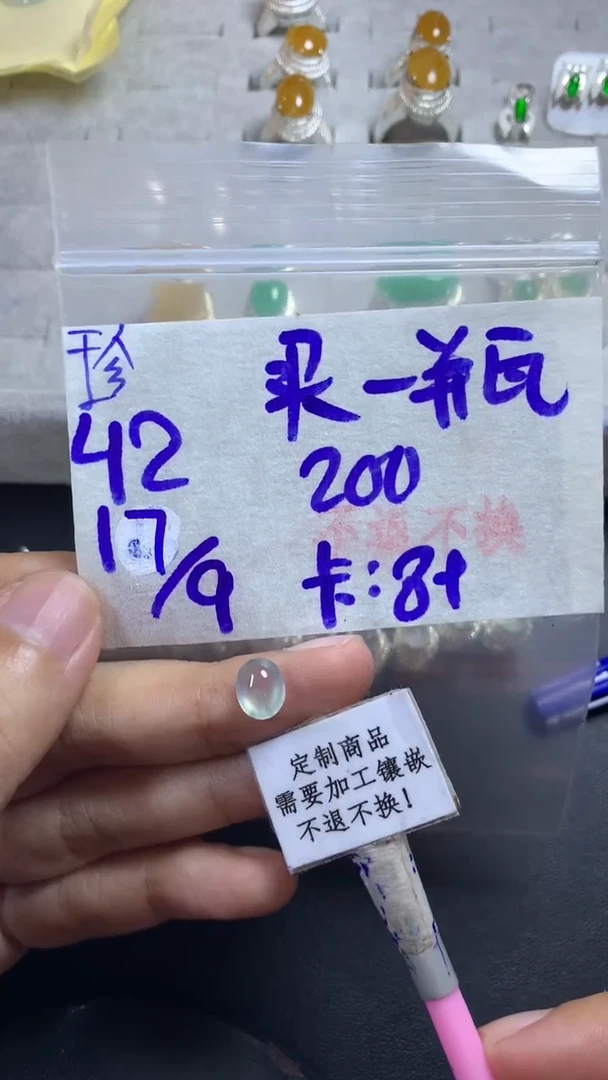 珍
42
17/9
买一并瓦
200
不退不换
卡:8+
定制商品
需要加工镶嵌
不退不换!